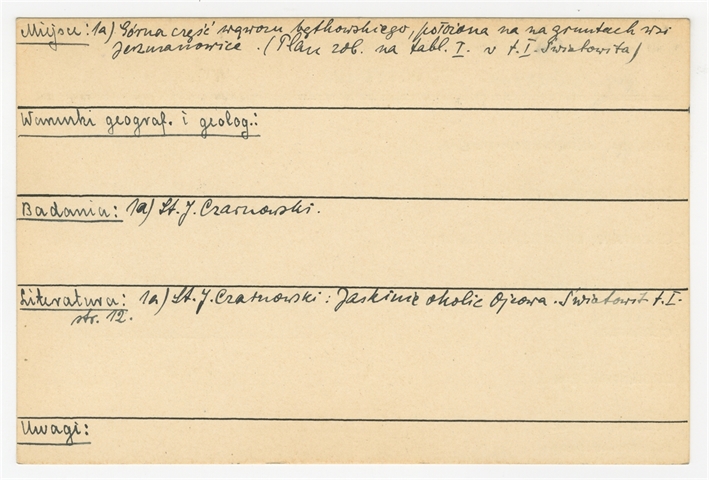 Miejsce: 1a) Górna część wąwozu będkowskiego, położona na na gruntach wsi
Jerzmanowice. (Plan zob. na tabl. I. v t. I. Światowita)
Warunki geograf. i geolog.:
Badania: 1a) St. J. Czarnowski.
Literatura: 1a) St. J. Czarnowski: Jaskinie okolic Ojcowa. Światowit t. I.
str. 12.
Uwagi: